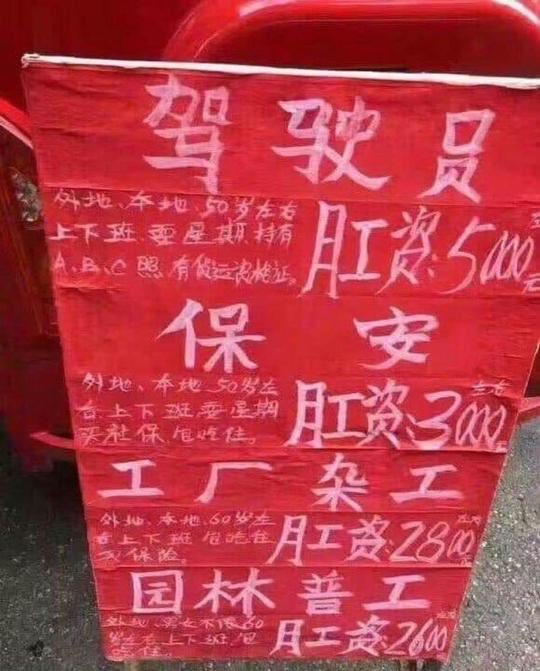 驾驶员
外地、本地、50岁左右
上下班、要星期、持有
A、B、C照有货运资格证。
月工资:5000左右元
保安
外地、本地、50岁左
右上下班要星期
买社保包吃住。
月工资:3000左右元
工厂杂工
外地、本地、60岁左
右上下班包吃住
保险。
月工资:2800左右
园林普工
外地、男女不限60
岁左右上下班包
吃住。
月工资:2600